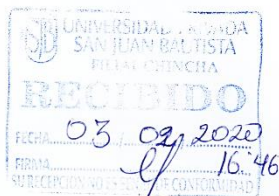 UNIVERSIDAD PRIVADA
SAN JUAN BAUTISTA
FILIAL CHINCHA
RECIBIDO
FECHA 03 02 2020
FIRMA 16:46
SU RECEPCION NO ES DE CONFORMIDAD